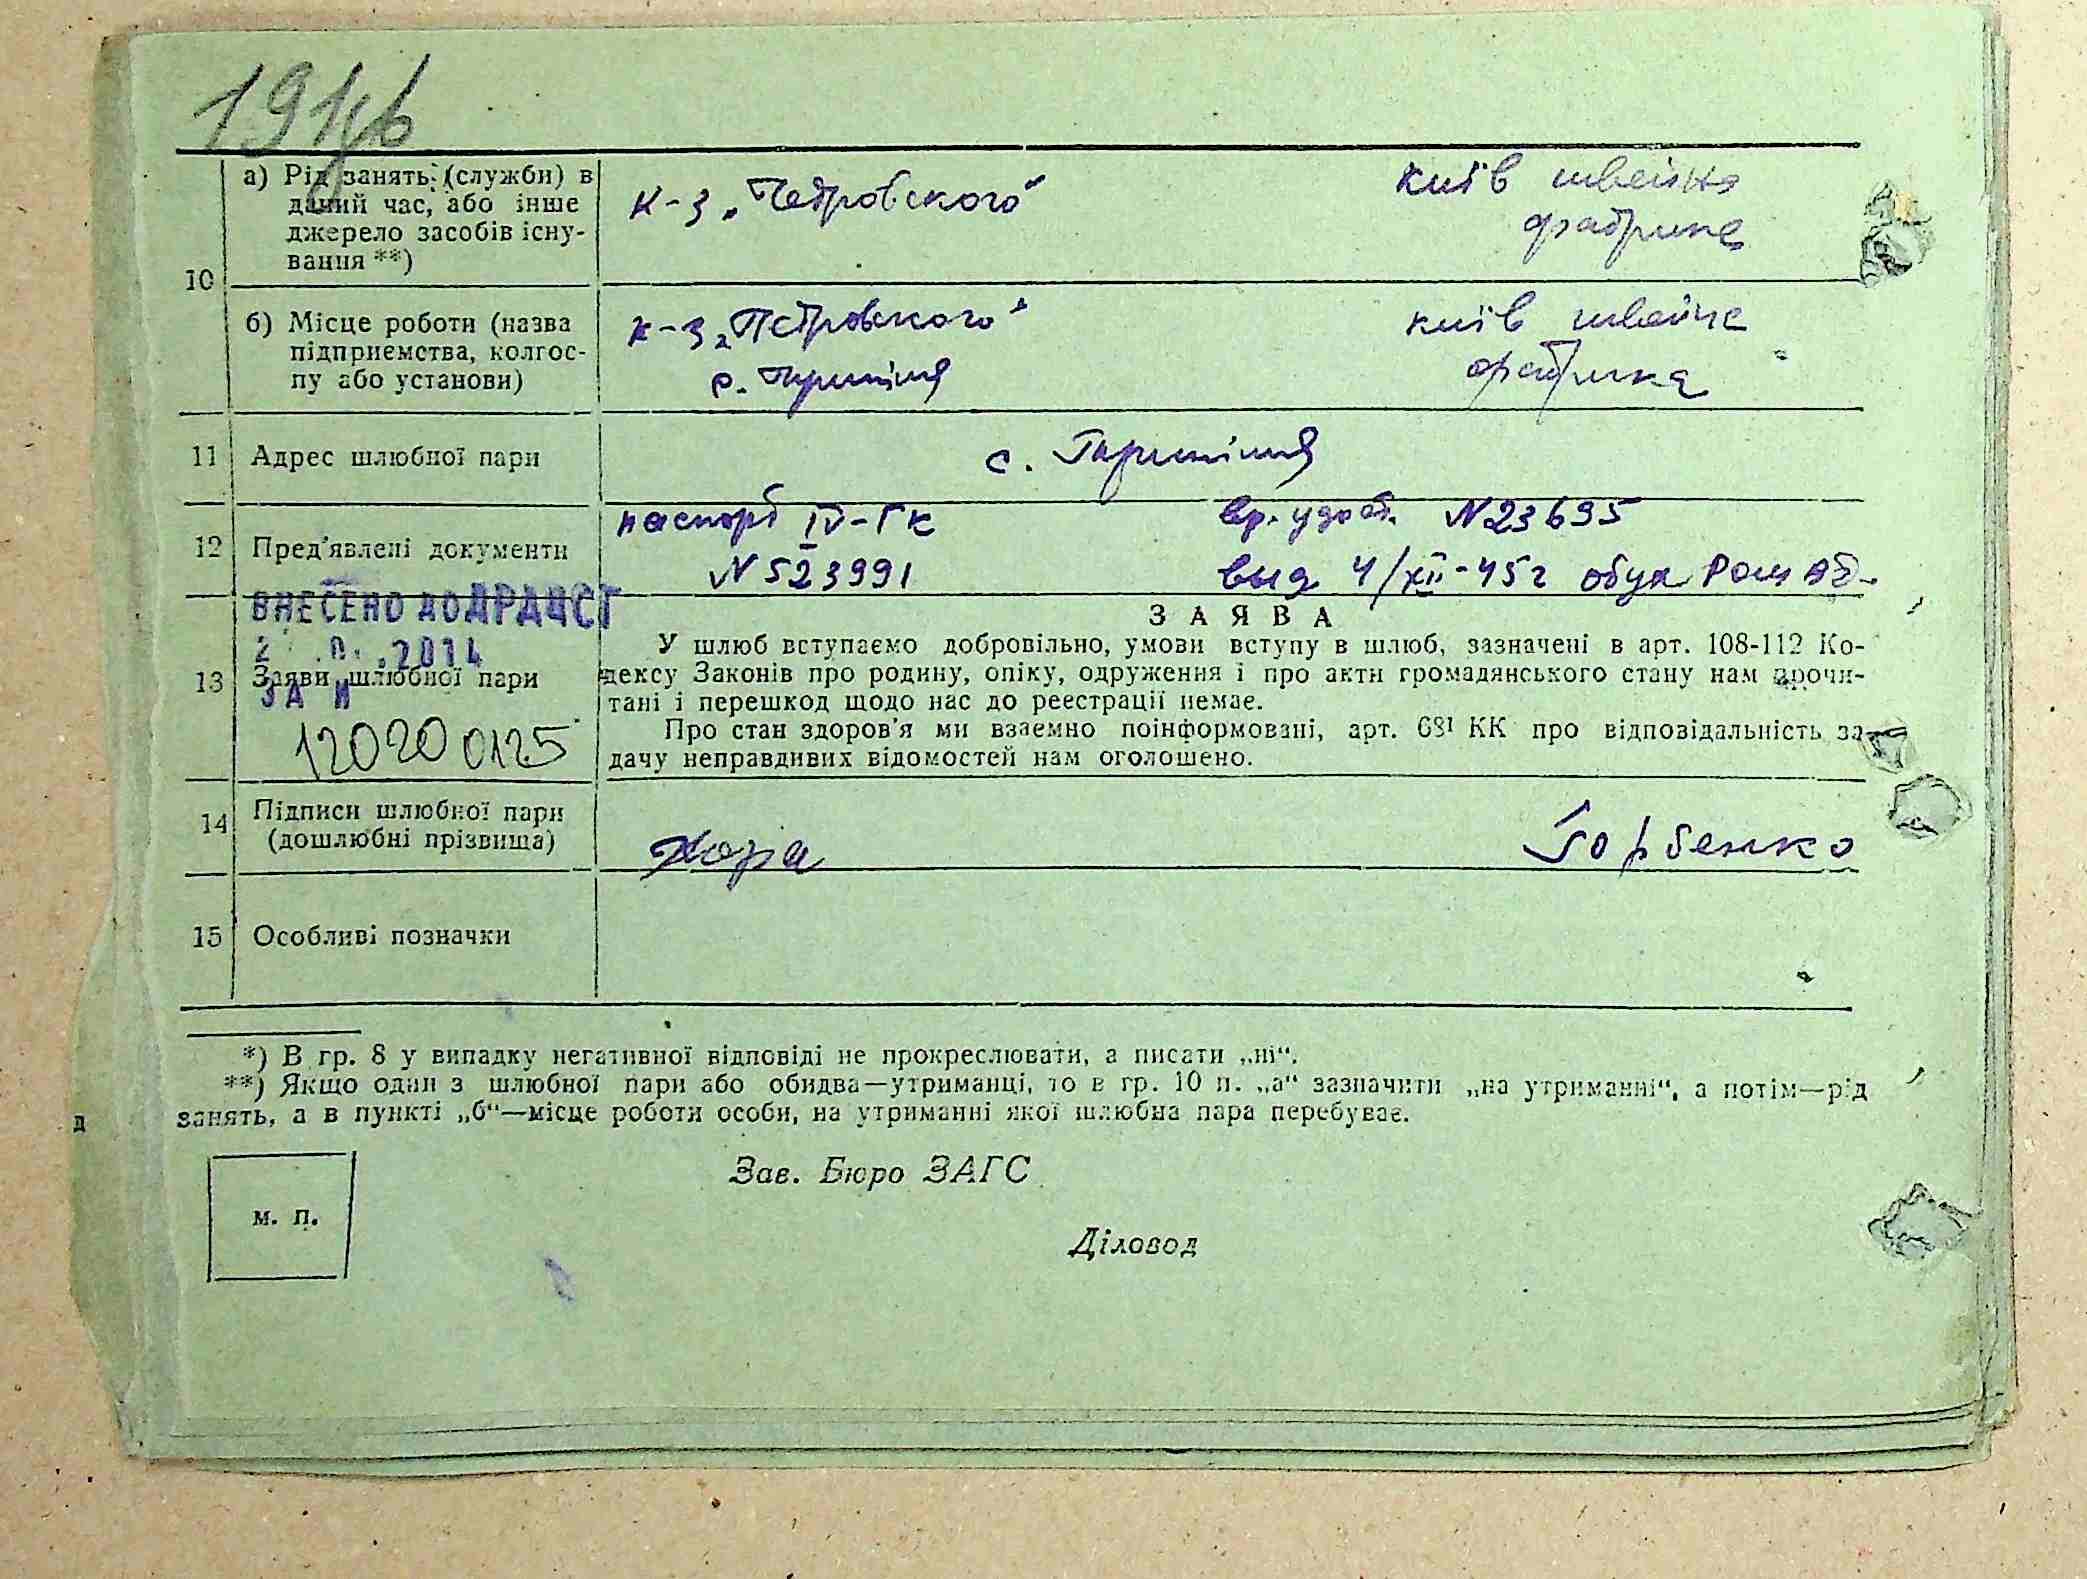 1946
а) Рід занять (служби) в
даний час, або інше
джерело засобів існу-
вання **)
к-з „Петровского"
Київ швейна
фабрика
10
б) Місце роботи (назва
підприємства, колгос-
пу або установи)
к-з „Петровского"
с.
Київ швейна
фабрика
11 Адрес шлюбної пари
с.
12 Пред'явлені документи
паспорт IV-ГК
N 523991
вр. удост. N 23695
выд 4/XII-45г
ВНЕСЕНО ДО ДРАЦСГ
2014
ЗА N
120200125
13 Заяви шлюбної пари
ЗАЯВА
У шлюб вступаємо добровільно, умови вступу в шлюб, зазначені в арт. 108-112 Ко-
дексу Законів про родину, опіку, одруження і про акти громадянського стану нам прочи-
тані і перешкод щодо нас до реєстрації немає.
Про стан здоров'я ми взаємно поінформовані, арт. 68¹ КК про відповідальність за
дачу неправдивих відомостей нам оголошено.
14 Підписи шлюбної пари
(дошлюбні прізвища)
Хора
Горбенко
15 Особливі позначки
*) В гр. 8 у випадку негативної відповіді не прокреслювати, а писати „ні".
**) Якщо один з шлюбної пари або обидва—утриманці, то в гр. 10 п. „а" зазначити „на утриманні", а потім—рід
занять, а в пункті „б"—місце роботи особи, на утриманні якої шлюбна пара перебуває.
Зав. Бюро ЗАГС
м. п.
Діловод